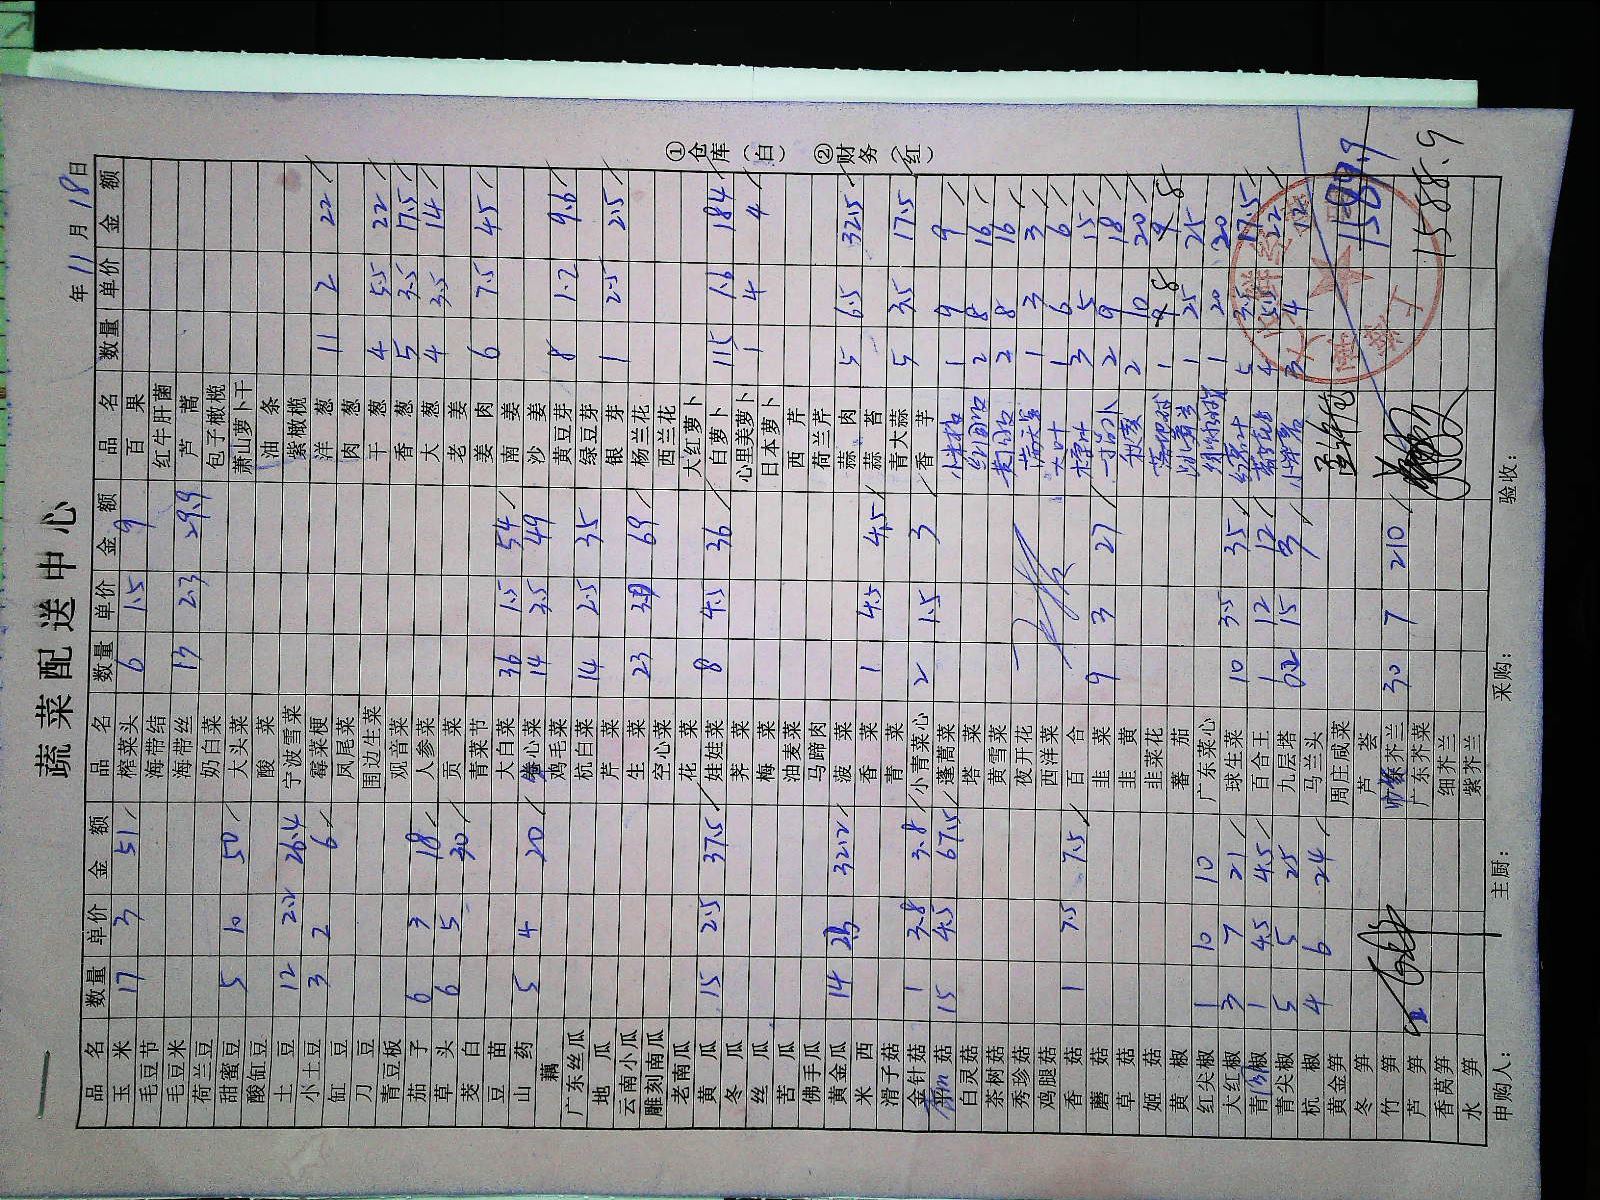 蔬菜配送中心
年 11 月 18 日
品名 数量 单价 金额 品名 数量 单价 金额 品名 数量 单价 金额
玉米 17 3 51 榨菜头 6 1.5 9 百果
毛豆节 海带结 红牛肝菌
毛豆米 海带丝 13 2.3 29.9 芦蒿
荷兰豆 奶白菜 包子橄榄
甜蜜豆 5 10 50 大头菜 萧山萝卜干
酸缸豆 酸菜 油条
土豆 12 2.2 26.4 宁波雪菜 紫橄榄
小土豆 3 2 6 霉菜梗 洋葱 11 2 22
缸豆 凤尾菜 肉葱
刀豆 围边生菜 干葱 4 5.5 22
青豆板 观音菜 香葱 5 3.5 17.5
茄子 6 3 18 人参菜 大葱 4 3.5 14
草头 6 5 30 贡菜 老姜
茭白 青菜节 姜肉 6 7.5 45
豆苗 大白菜 36 1.5 54 南姜
山药 5 4 20 卷心菜 14 3.5 49 沙姜
藕 鸡毛菜 黄豆芽 8 1.2 9.6
广东丝瓜 杭白菜 14 2.5 35 绿豆芽
地瓜 芹菜 银芽 1 2.5 2.5
云南小瓜 生菜 23 3 69 杨兰花
雕刻南瓜 空心菜 西兰花
老南瓜 花菜 大红萝卜
黄瓜 15 2.5 37.5 娃娃菜 8 4.5 36 白萝卜 115 1.6 184
冬瓜 荠菜 心里美萝卜 1 4 4
丝瓜 梅菜 日本萝卜
苦瓜 油麦菜 西芹
佛手瓜 马蹄肉 荷兰芹
黄金瓜 14 2.3 32.2 菠菜 蒜肉 5 6.5 32.5
米西 香菜 1 4.5 4.5 蒜苔
滑子菇 青菜 青大蒜 5 3.5 17.5
金针菇 1 3.8 3.8 小青菜心 2 1.5 3 香芋
菇 15 4.5 67.5 蓬蒿菜 1 9 9
白灵菇 塔菜 2 8 16
茶树菇 黄雪菜 2 8 16
秀珍菇 夜开花 1 3 3
鸡腿菇 西洋菜 大叶 1 6 6
香菇 1 7.5 7.5 百合 3 5 15
蘑菇 韭菜 9 3 27 2 9 18
草菇 韭黄 2 10 20
姬菇 韭菜花 1 8 8
黄椒 蕃茄 1 25 25
红尖椒 1 10 10 广东菜心 1 20 20
大红椒 3 7 21 球生菜 10 3.5 35 5 3.5 17.5
青椒 1 4.5 4.5 百合王 1 12 12 4 5.5 22
青尖椒 5 5 25 九层塔 15 3 4 12
杭椒 4 6 24 马兰头
黄金笋 周庄咸菜
冬笋 芦荟 1589.9
竹笋 芥兰 30 7 210
芦笋 广东芥菜 1588.9
香莴笋 细芥兰
水笋 紫芥兰
申购人： 主厨： 采购： 验收：
①仓库（白） ②财务（红）